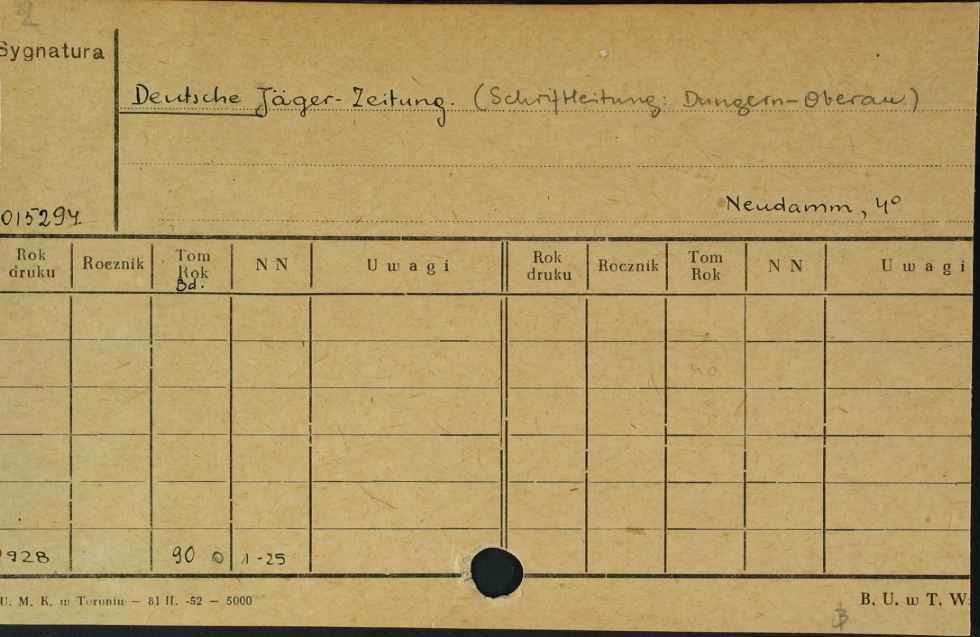 2
Sygnatura
Deutsche Jäger-Zeitung. (Schriftleitung: Dungern-Oberau.)
Neudamm, 4º
015297
Rok druku Rocznik Tom Rok Bd. NN Uwagi Rok druku Rocznik Tom Rok NN Uwagi
no
928 90 1-25
U. M. K. w Toruniu — 81 II. -52 — 5000
B. U. w T. W.